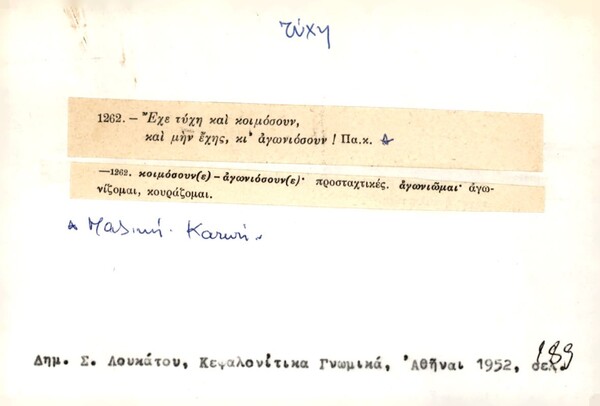 τύχη
1262. – Ἔχε τύχη καὶ κοιμόσουν,
καὶ μὴν ἔχῃς, κι' ἀγωνιόσουν! Πα.κ.
—1262. κοιμόσουν(ε) – ἀγωνιόσουν(ε)· προσταχτικές. ἀγωνιῶμαι· ἀγω-
νίζομαι, κουράζομαι.
Δημ. Σ. Λουκάτου, Κεφαλονίτικα Γνωμικά, Ἀθῆναι 1952, σελ. 189